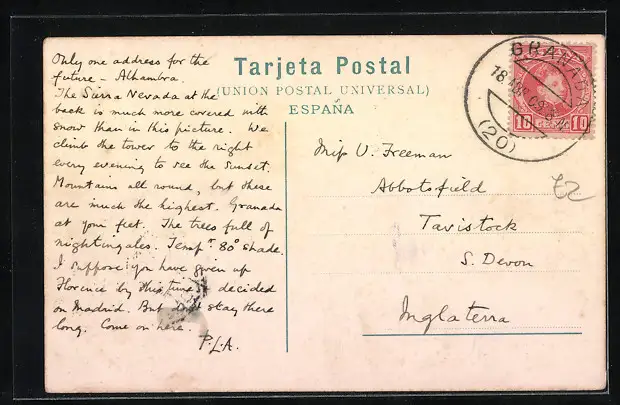 Only one address for the
future - Alhambra.
The Sierra Nevada at the
back is much more covered with
snow than in this picture. We
climb the tower to the right
every evening to see the sunset.
Mountains all round, but these
are much the highest. Granada
at your feet. The trees full of
nightingales. Temp. 80° shade.
I suppose you have given up
Florence by this time & decided
on Madrid. But don't stay there
long. Come on here.
P.L.A.
Tarjeta Postal
(UNIÓN POSTAL UNIVERSAL)
ESPAÑA
GRANADA
18
09
(20)
10 10
Miss V. Freeman
Abbotsfield
Tavistock
S. Devon
Inglaterra